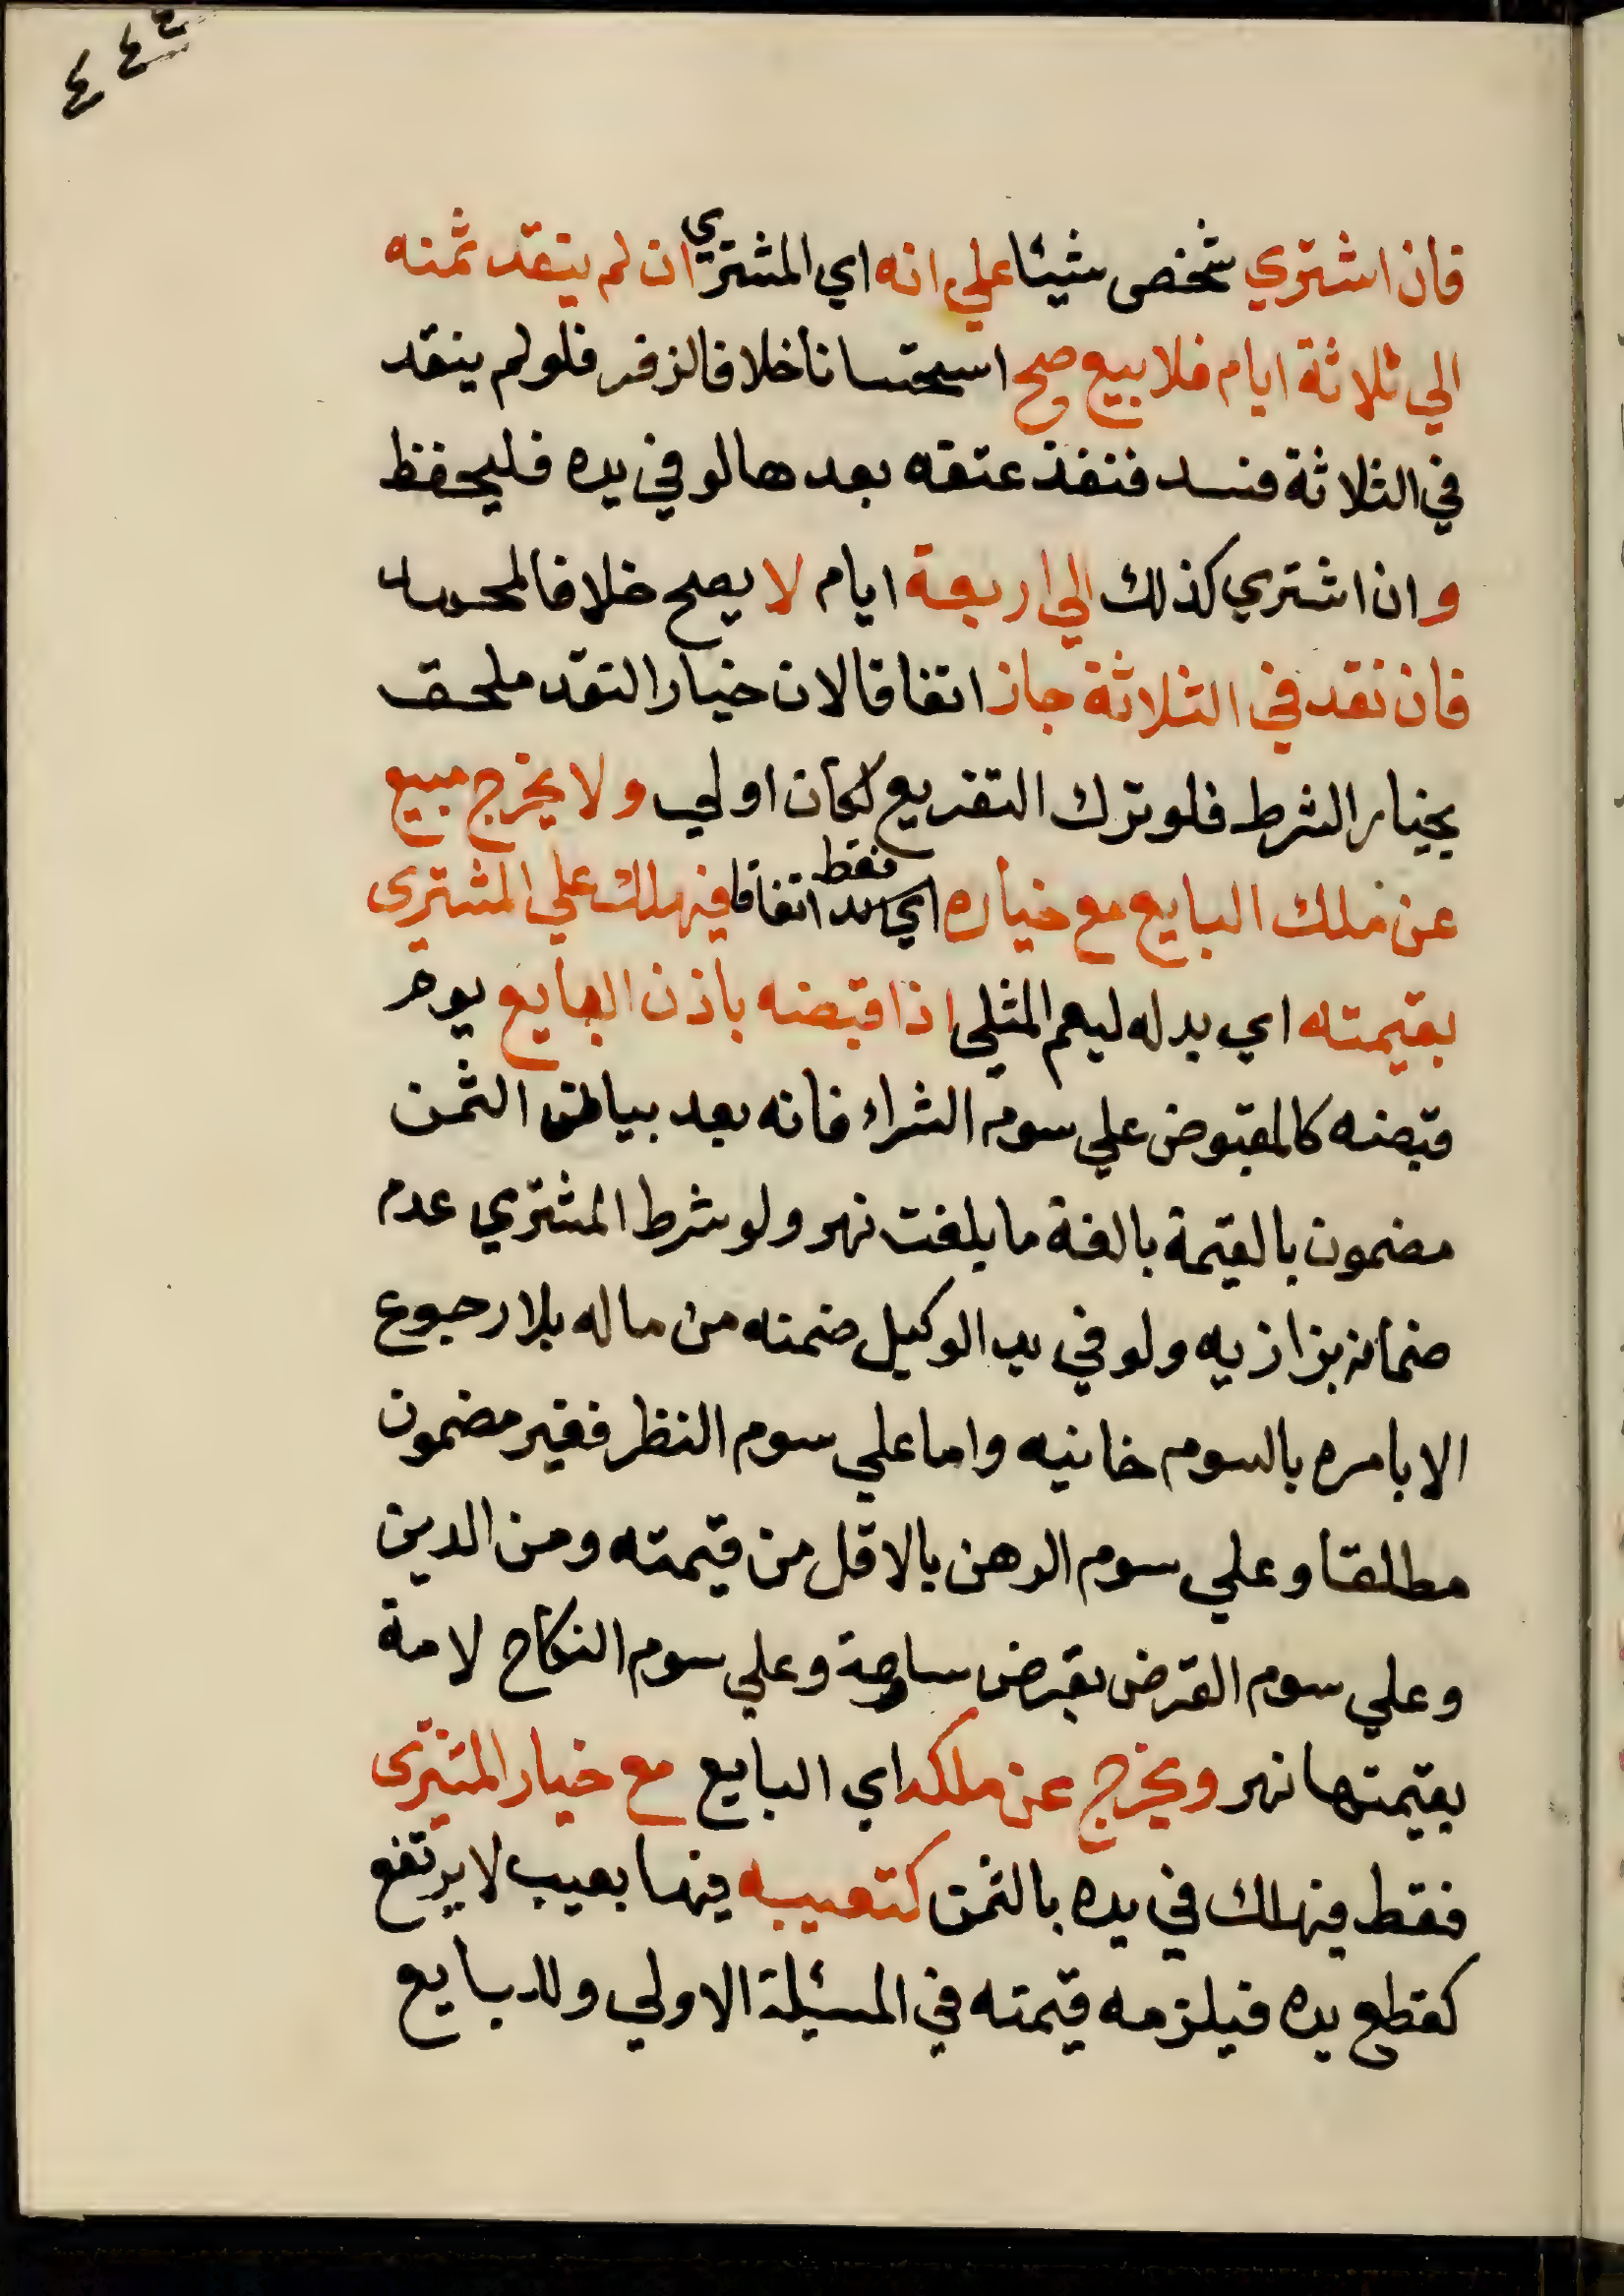 ٤٤٤
فان اشتري شخص شيئا علي انه اي المشتري ان لم ينقد ثمنه
الي ثلاثة ايام فلا بيع صح استحسانا خلافا لزفر فلو لم ينقد
في الثلاثة فسد فنفذ عتقه بعدها لو في يده فليحفظ
وان اشتري كذلك الي اربعة ايام لا يصح خلافا لمحمد
فان نقد في الثلاثة جاز اتفاقا لان خيار النقد ملحق
بخيار الشرط فلو ترك التفريع لكان اولي ولا يخرج مبيع
عن ملك البايع مع خياره فقط اتفاقا فيهلك علي المشتري
بقيمته اي بدله ليعم المثلي اذا قبضه باذن البايع يوم
قبضه كالمقبوض علي سوم الشراء فانه بعد بيان الثمن
مضمون بالقيمة بالغة ما بلغت نهر ولو شرط المشتري عدم
ضمانه بزازيه ولو في يد الوكيل ضمنه من ماله بلا رجوع
الا بامره بالسوم خانيه واما علي سوم النظر فغير مضمون
مطلقا وعلي سوم الرهن بالاقل من قيمته ومن الدين
وعلي سوم القرض بقرض ساومة وعلي سوم النكاح لامة
بقيمتها نهر ويخرج عن ملكه اي البايع مع خيار المشتري
فقط فيهلك في يده بالثمن كتعيبه فيها بعيب لا يرتفع
كقطع يده فيلزمه قيمته في المسئلة الاولي وللبايع